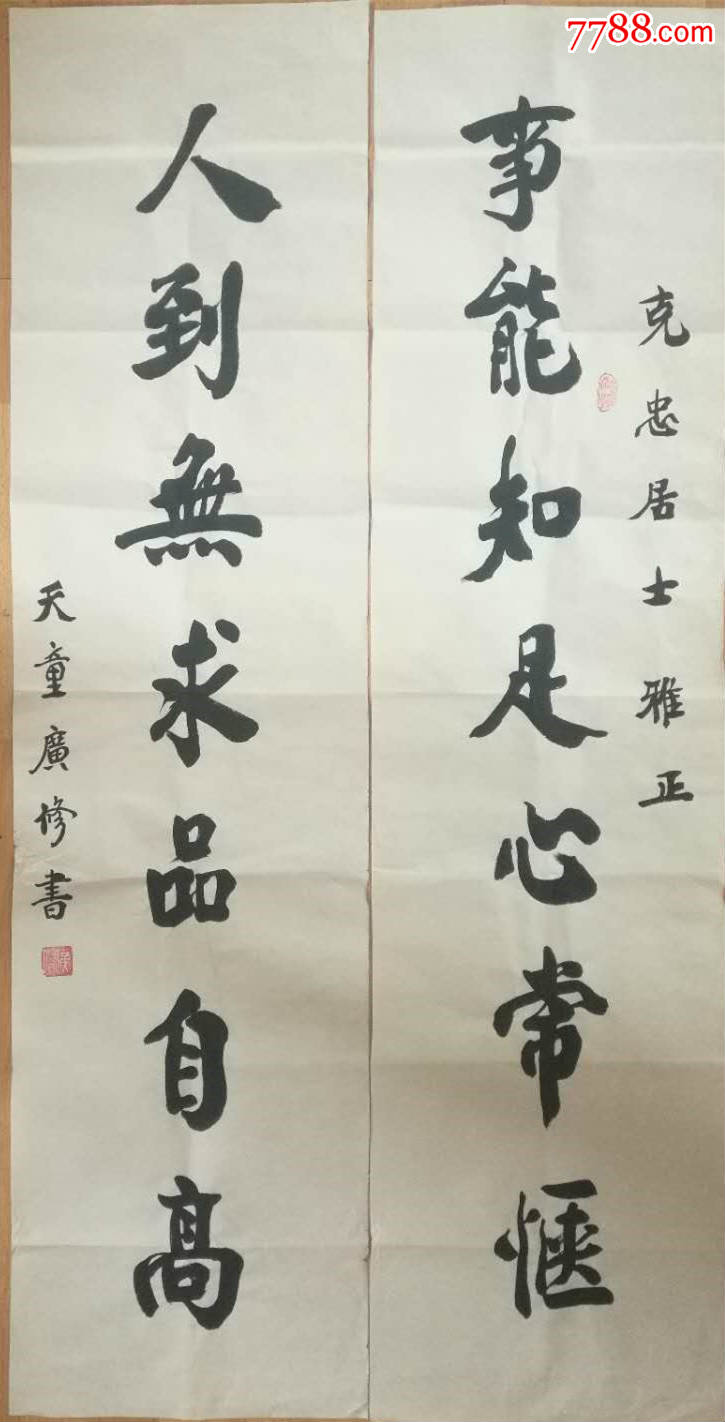 7788.com
克忠居士雅正
事能知足心常惬
人到無求品自高
天童廣修書